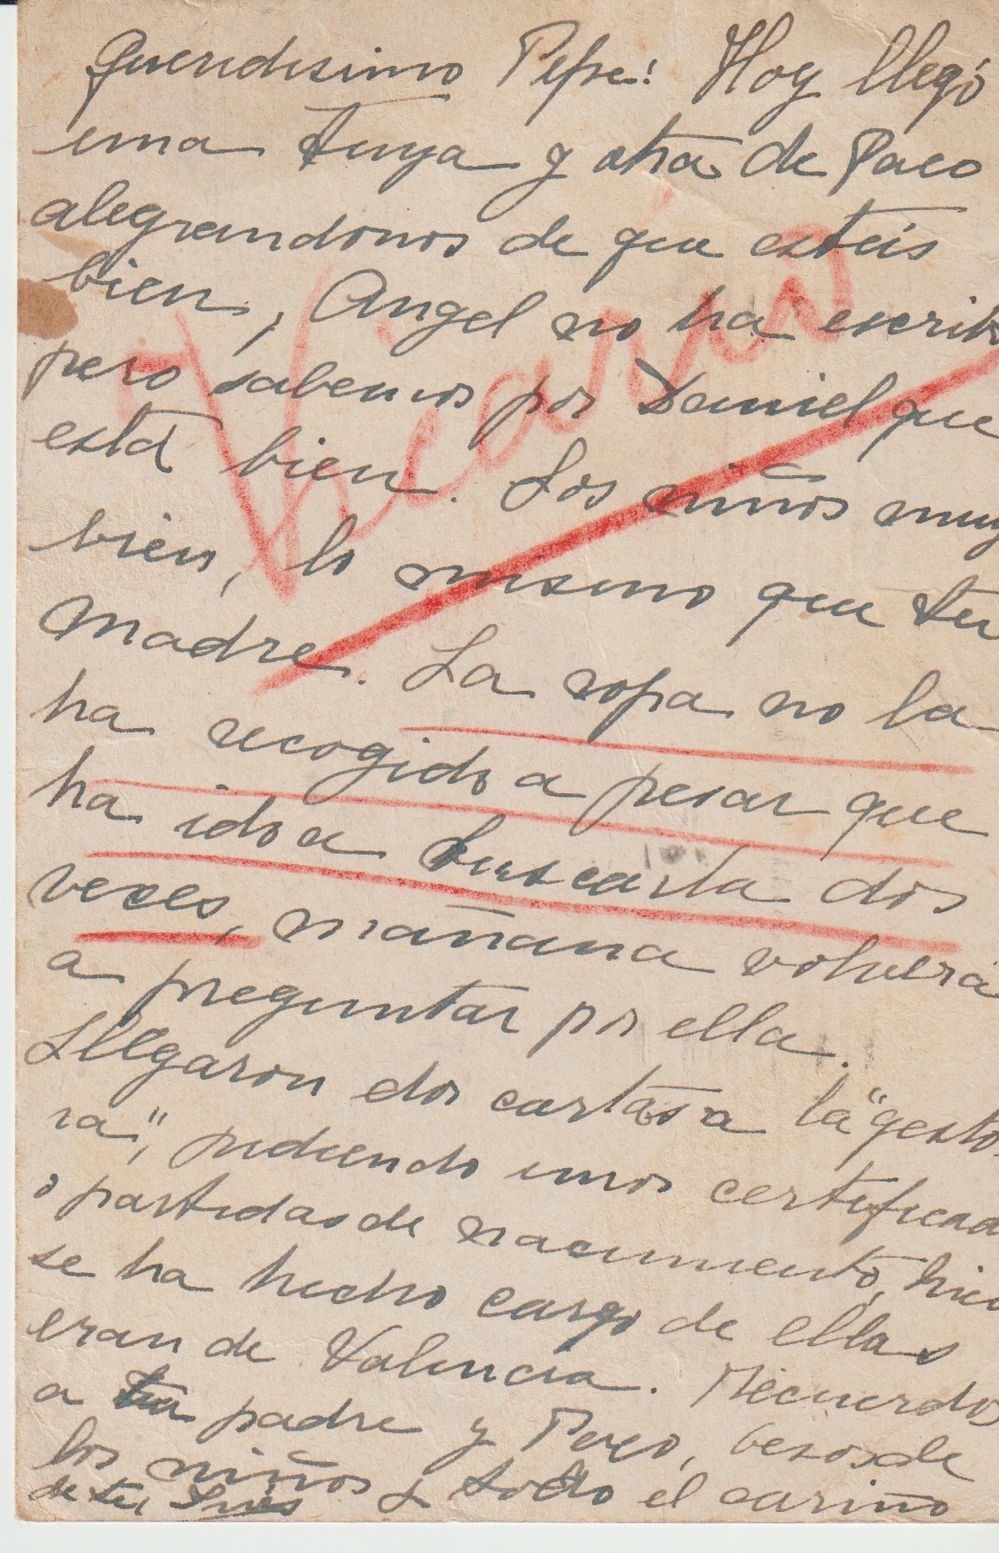 Queridisimo Pepe: Hoy llegó
una tuya y otra de Paco
alegrandonos de que esteis
bien, Angel no ha escrito
pero sabemos por Daniel que
está bien. Los niños muy
bien, lo mismo que tu
madre. La ropa no la
ha recogido a pesar que
ha ido a buscarla dos
veces, mañana volverá
a preguntar por ella.
Llegaron dos cartas a la "gesto
ra", pidiendo unos certificad
o partidas de nacimiento,
se ha hecho cargo de ellas
eran de Valencia. Recuerdos
a tu padre y Paco, besos de
los niños y todo el cariño
de tu Inés